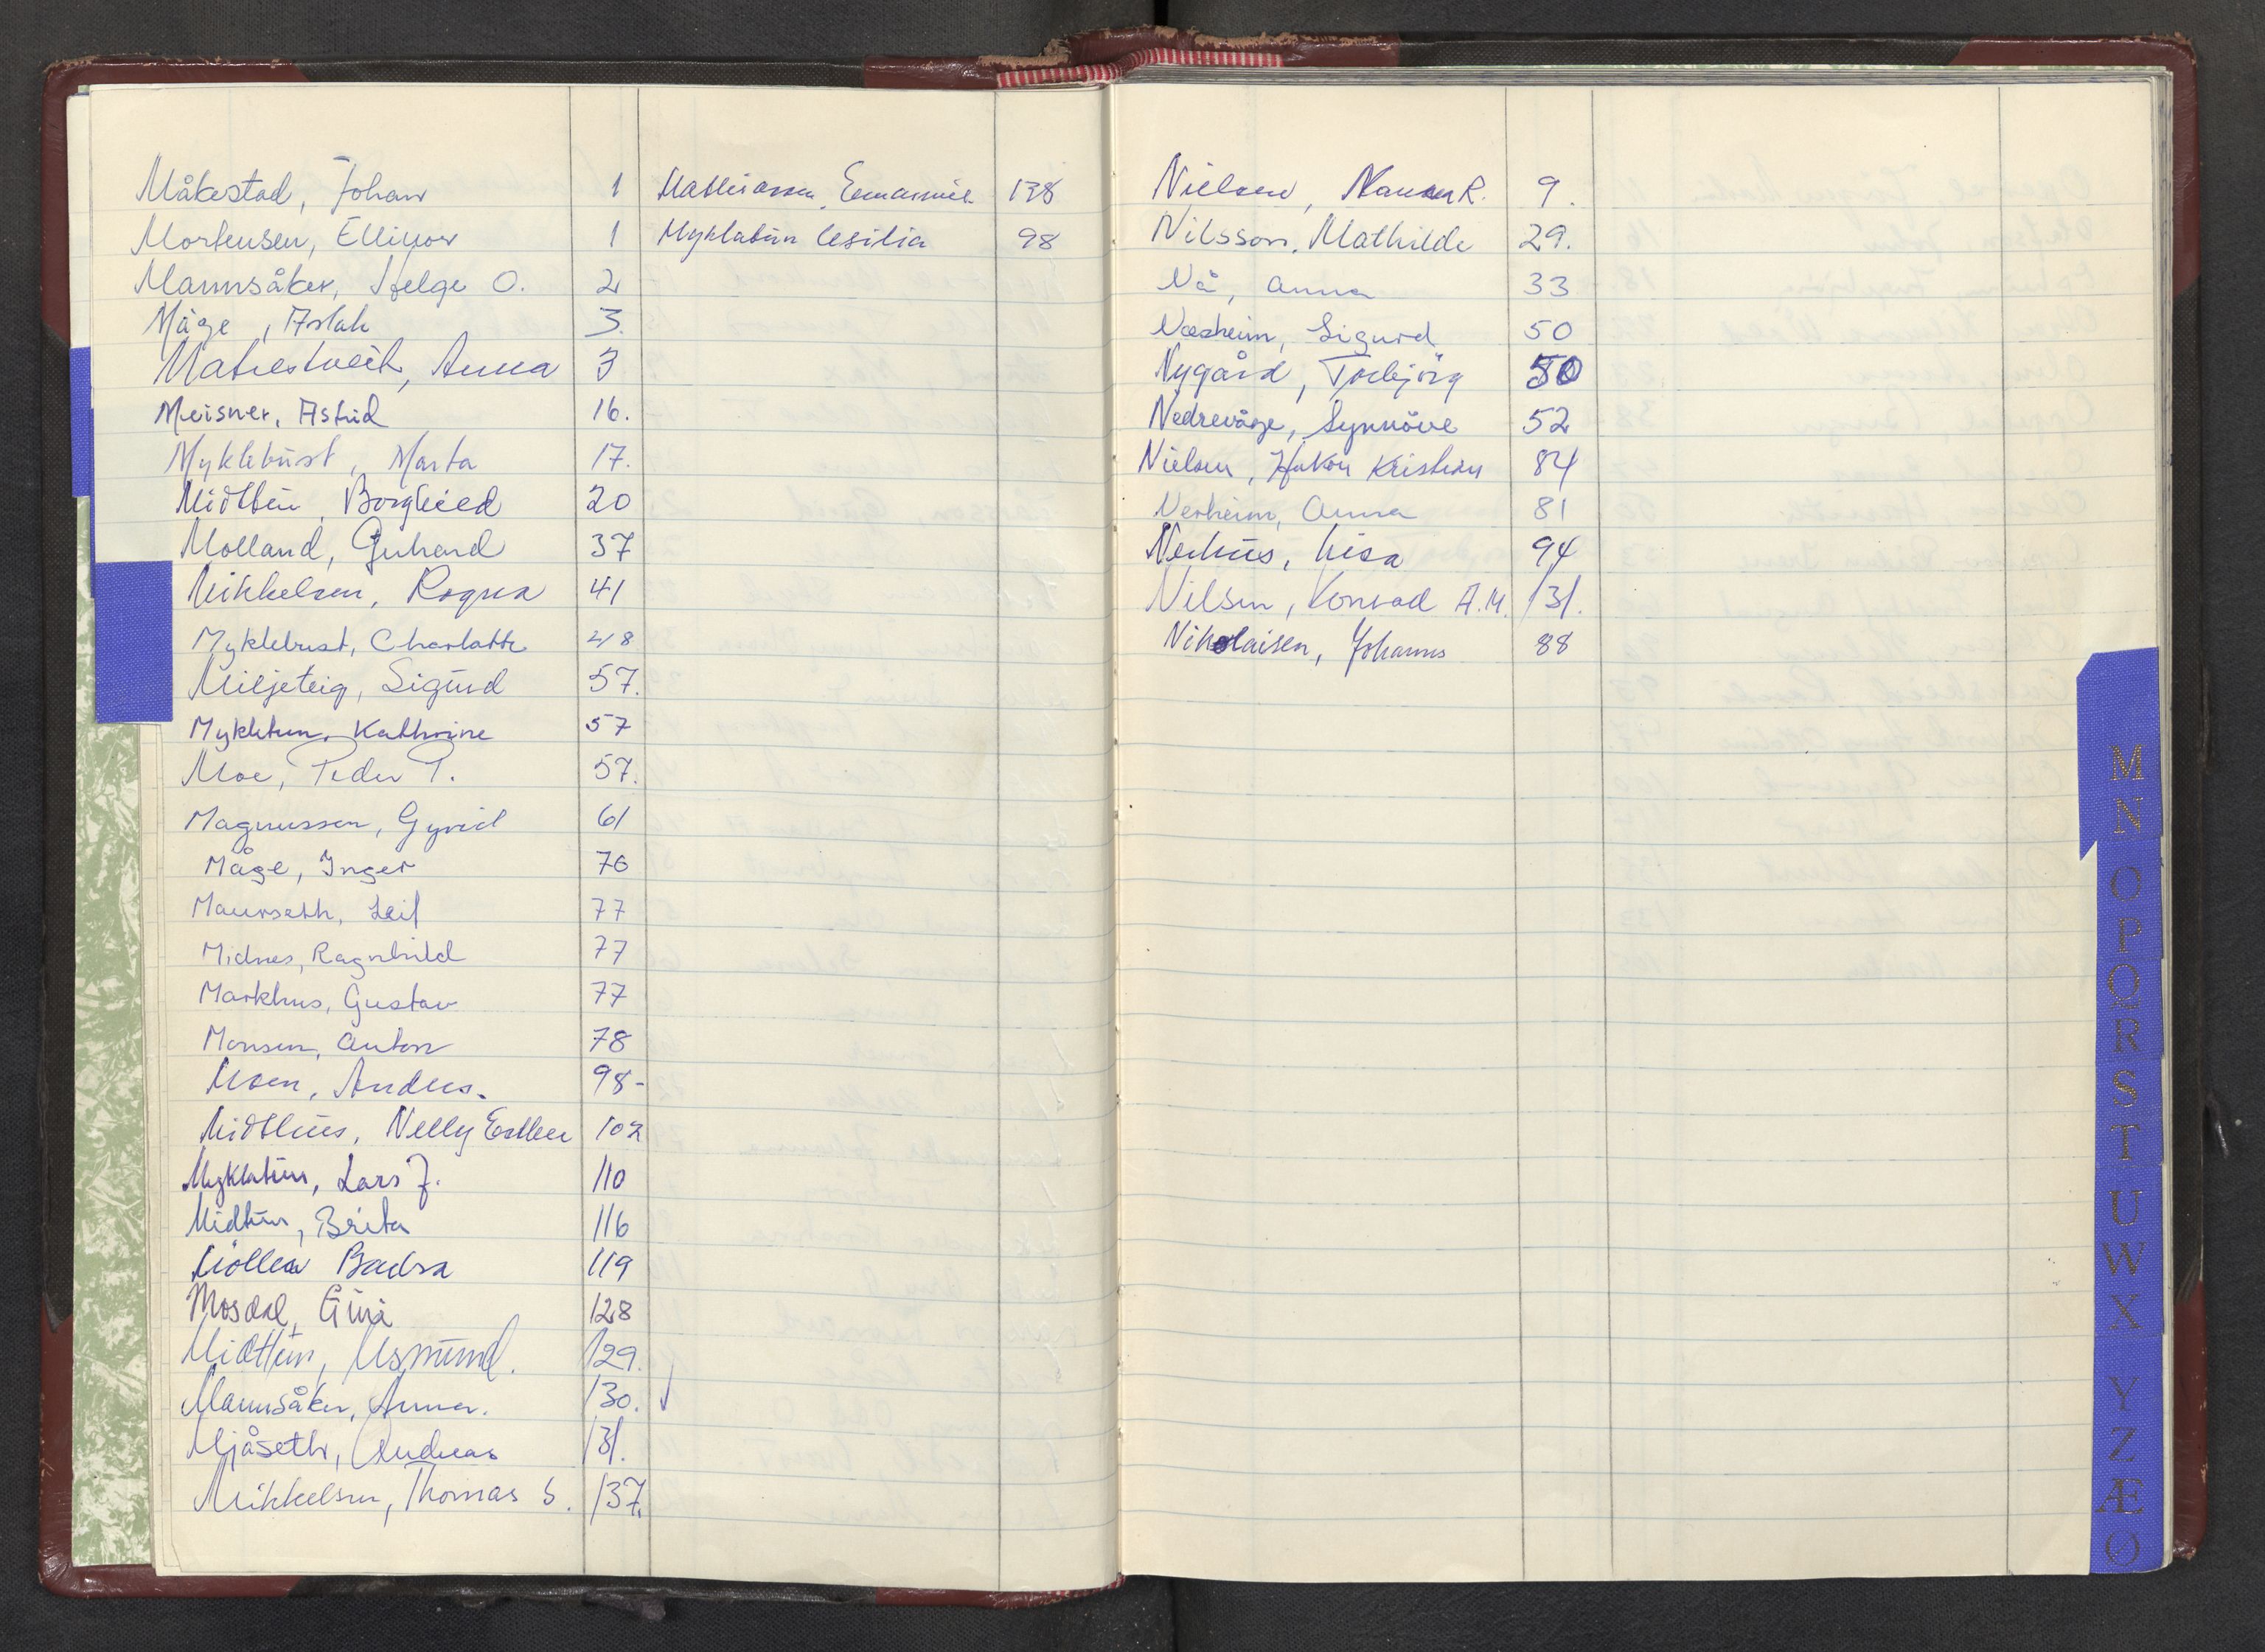 Måkestad, Johan 1
Mortensen, Ellinor 1
Mannsåker, Helge O. 2
Måge, Aslak 3.
Matrestveit, Anna 3
Meisner, Astrid 16.
Myklebust, Marta 17.
Midttun, Borghild 20
Molland, Gerhard 37
Mikkelsen, Ragna 41
Myklebust, Charlotte 48
Miljeteig, Sigurd 57.
Mykletun, Kathrine 57
Moe, Peder P. 57.
Magnussen, Gyrid 61
Måge, Inger 76
Maurseth, Leif 77
Midnes, Ragnhild 77
Markhus, Gustav 77
Monsen, Anton 78
Moen, Anders. 98-
Midthus, Nelly Esther 102
Myklatun, Lars J. 110
Midtun, Brita 116
Möller 119
Mosdal, Gina 128
Midttun, Asmund. 129.
Mannsåker, Anna. 130.
Mjåseth, Andreas 131.
Mikkelsen, Thomas S. 137.
Mathiassen, Emanuel 138
Myklatun Cesilia 98
Nielsen, R. 9.
Nilsson, Mathilde 29.
Nå, Anna 33
Næsheim, Sigurd 50
Nygård, Torbjörg 50
Nedrevåge, Synnöve 52
Nielsen, Håkon Kristian 84
Nerheim, Anna 81
Nerhus, Lisa 94
Nilsen, Konrad A.M. 131.
Nikolaisen, Johannes 88
M
N
O
P
Q
R
S
T
U
W
X
Y
Z
Æ
O